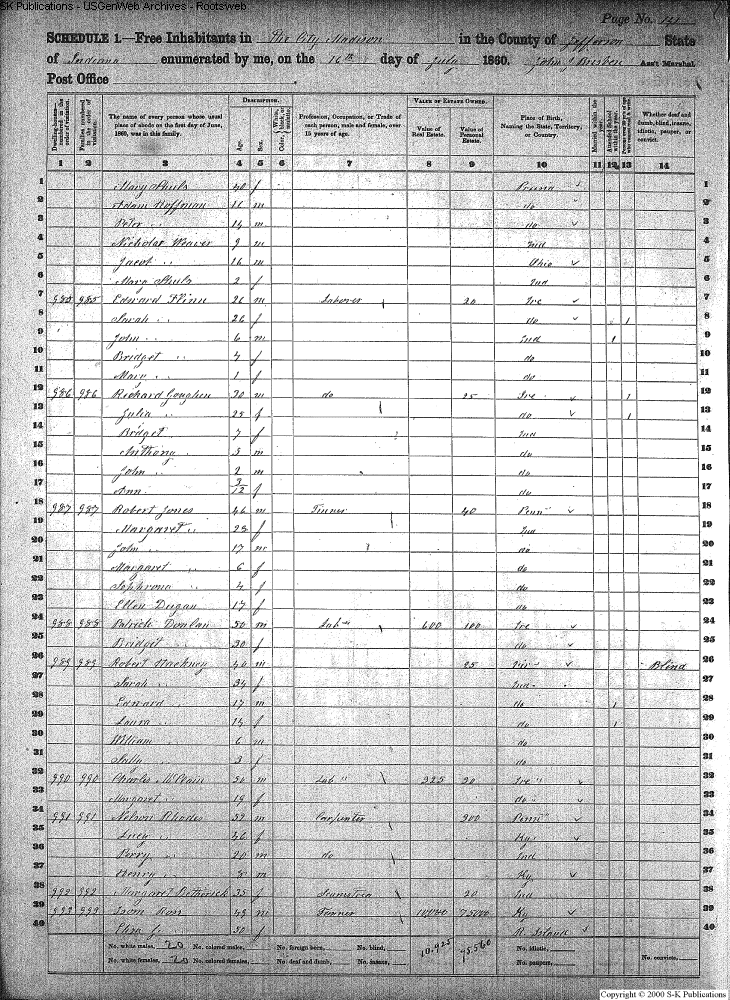 S-K Publications - USGenWeb Archives - Rootsweb
Page No. 141
SCHEDULE 1.—Free Inhabitants in The City Madison in the County of Jefferson State
of Indiana enumerated by me, on the 16th day of July 1860. John Ass't Marshal
Post Office
DESCRIPTION. VALUE OF ESTATE OWNED.
Dwelling-houses—numbered in the order of visitation. Families numbered in the order of visitation. The name of every person whose usual place of abode on the first day of June, 1860, was in this family. Age. Sex. White, Color, black, or mulatto. Profession, Occupation, or Trade of each person, male and female, over 15 years of age. Value of Real Estate. Value of Personal Estate. Place of Birth, Naming the State, Territory, or Country. Married within the year. Attended School within the year. Whether deaf and dumb, blind, insane, idiotic, pauper, or convict.
1 2 3 4 5 6 7 8 9 10 11 12 13 14
1 Mary 40 f 1
2 Adam Hoffman 11 m do 2
3 Peter " 14 m do 3
4 Nicholas Weaver 9 m Ind 4
5 Jacob " 16 m Ohio 5
6 Mary 2 f Ind 6
7 985 985 Edward Flinn 26 m Laborer 20 Ire 7
8 Sarah " 26 f do 1 8
9 John " 6 m Ind 1 9
10 Bridget " 4 f do 10
11 Mary " 1 f do 11
12 986 986 Richard Goughen 30 m do 25 Ire 1 12
13 Julia " 25 f do 1 13
14 Bridget " 7 f Ind 14
15 Anthony " 3 m do 15
16 John " 2 m do 16
17 Ann 3/12 f do 17
18 987 987 Robert Jones 46 m Tinner 40 Penn 18
19 Margaret " 28 f Ind 19
20 John " 17 m do 20
21 Margaret " 6 f do 21
22 Sophrona " 4 f do 22
23 Ellen Dugan 17 f do 23
24 988 988 Patrick Donlan 50 m Lab" 600 100 Ire 24
25 Bridget " 30 f do 25
26 989 989 Robert Hackney 40 m 25 Vir Blind 26
27 Sarah " 34 f Ind 27
28 Edward " 17 m do 1 28
29 Laura " 14 f do 1 29
30 William " 6 m do 30
31 " 3 f do 31
32 990 990 Charles McClain 50 m Lab" 225 20 Ire" 32
33 Margaret " 19 f do 33
34 991 991 Nelson Rhodes 52 m Carpenter 300 Penn 34
35 Lucy " 46 f Ky 35
36 Perry " 20 m do Ind 36
37 Henry " m Ky 37
38 992 992 Margaret 35 f 20 Ind 38
39 993 993 49 m Tanner 10,000 75000 Ky 39
40 50 f R. Island 40
No. white males, 20 No. colored males, No. foreign born, No. blind, 10.925 75.560 No. idiotic,
No. white females, 20 No. colored females, No. deaf and dumb, No. insane, No. paupers, No. convicts,
Copyright © 2000 S-K Publications